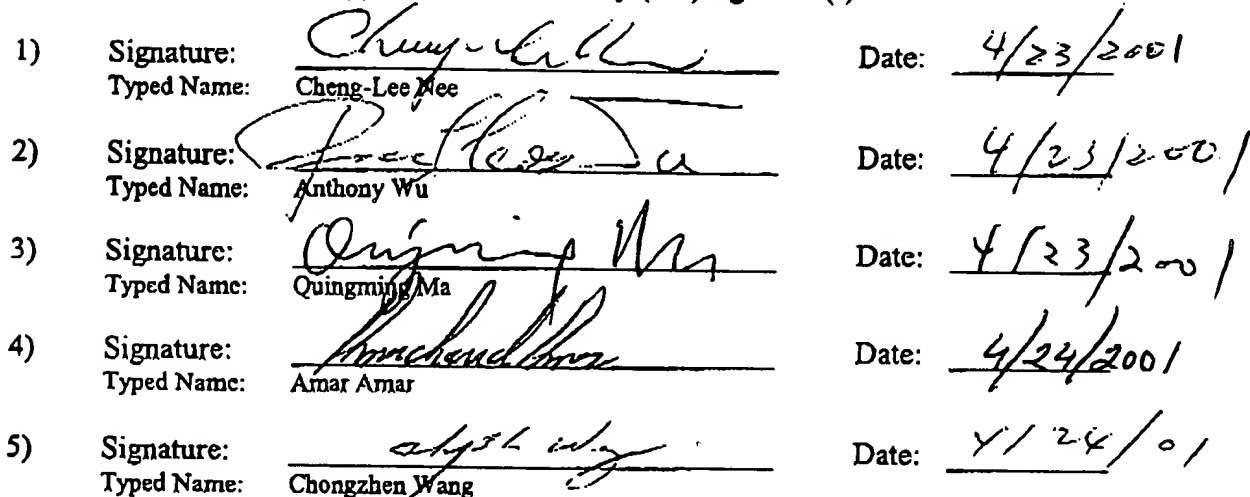 1) Signature: Date: 4/23/2001
Typed Name: Cheng-Lee Nee
2) Signature: Date: 4/23/2001
Typed Name: Anthony Wu
3) Signature: Qingming Ma Date: 4/23/2001
Typed Name: Quingming Ma
4) Signature: Date: 4/24/2001
Typed Name: Amar Amar
5) Signature: Date: 4/24/01
Typed Name: Chongzhen Wang